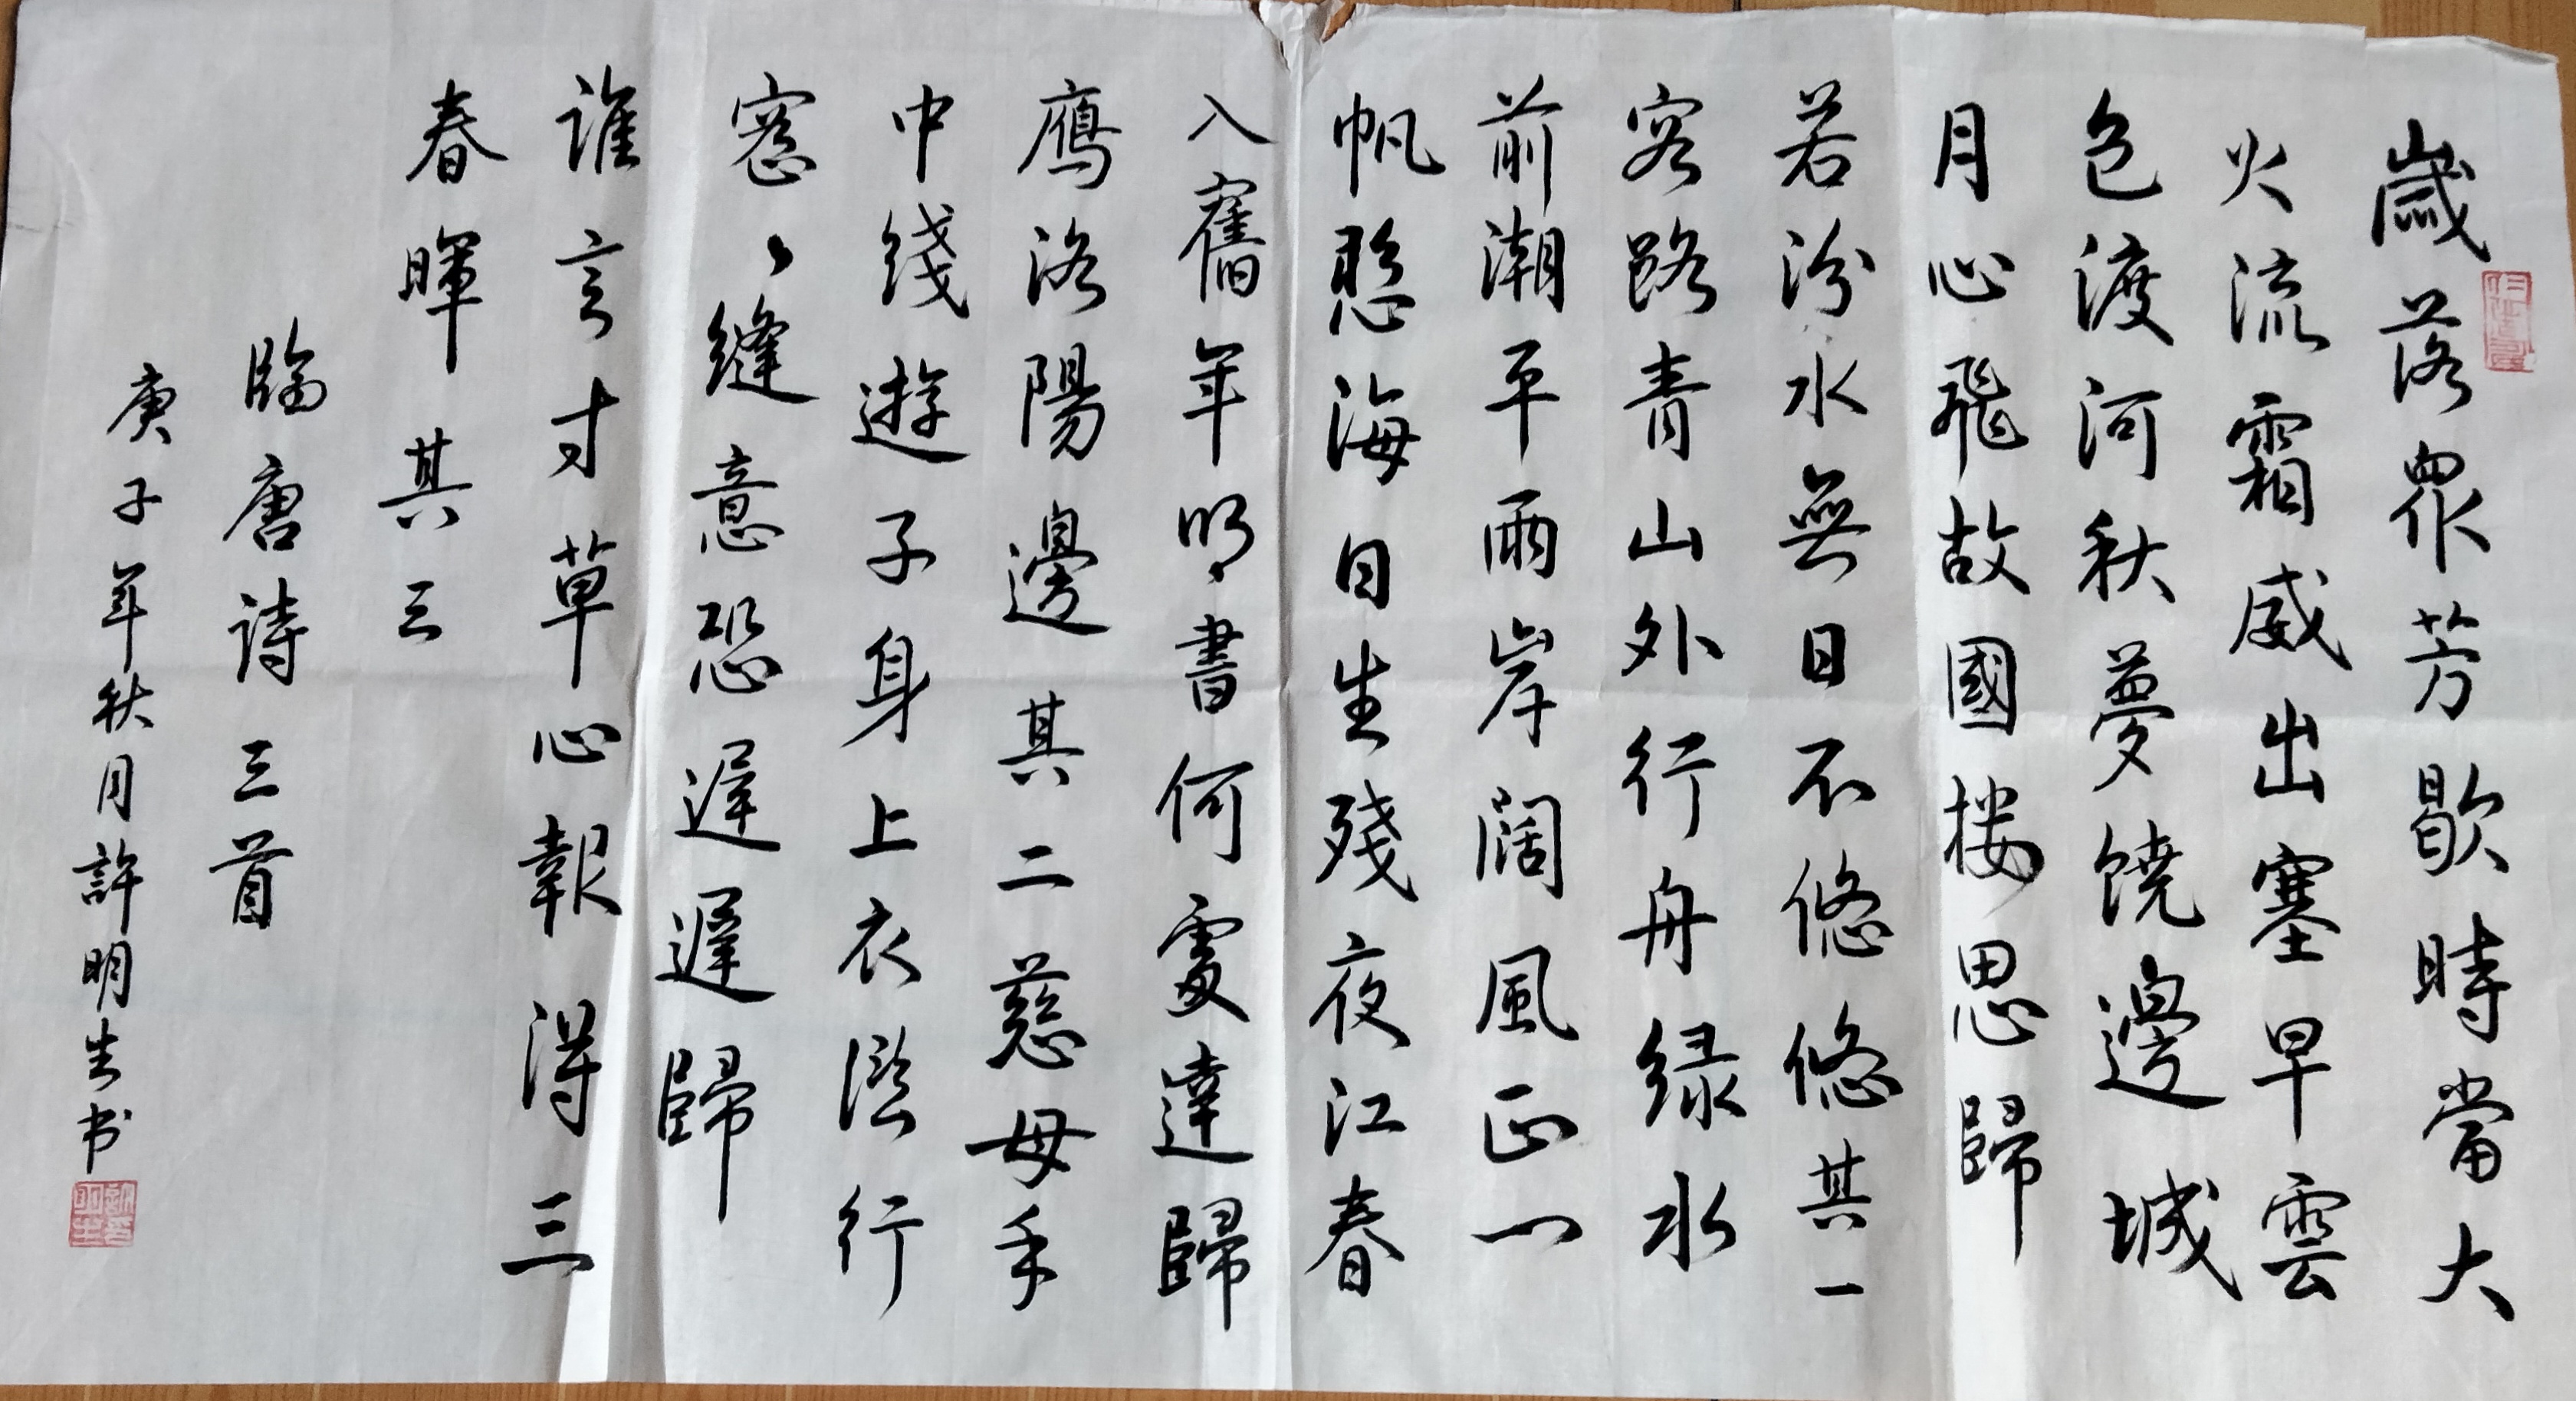 歲落眾芳歇時當大
火流霜威出塞早雲
色渡河秋夢饒邊城
月心飛故國楼思歸
若汾水無日不悠悠其一
客路青山外行舟绿水
前潮平兩岸闊風正一
帆懸海日生殘夜江春
入舊年鄉書何處達歸
鴈洛陽邊其二慈母手
中綫遊子身上衣臨行
密、縫意恐遲遲歸
誰言寸草心報得三
春暉其三
臨唐詩三首
庚子年秋月許明生书